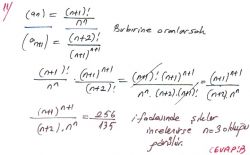 14)
(an) = (n+1)! / n^n
(an+1) = (n+2)! / (n+1)^(n+1)
Birbirine oranlarsak
(n+1)! / n^n · (n+1)^(n+1) / (n+2)! = (n+1)! (n+1)^(n+1) / n^n · (n+2).(n+1)! = (n+1)^(n+1) / (n+2) n^n
(n+1)^(n+1) / (n+2) . n^n = 256 / 135
ifadesinde şıklar
incelenirse n=3 olduğu
görülür.
CEVAP: B